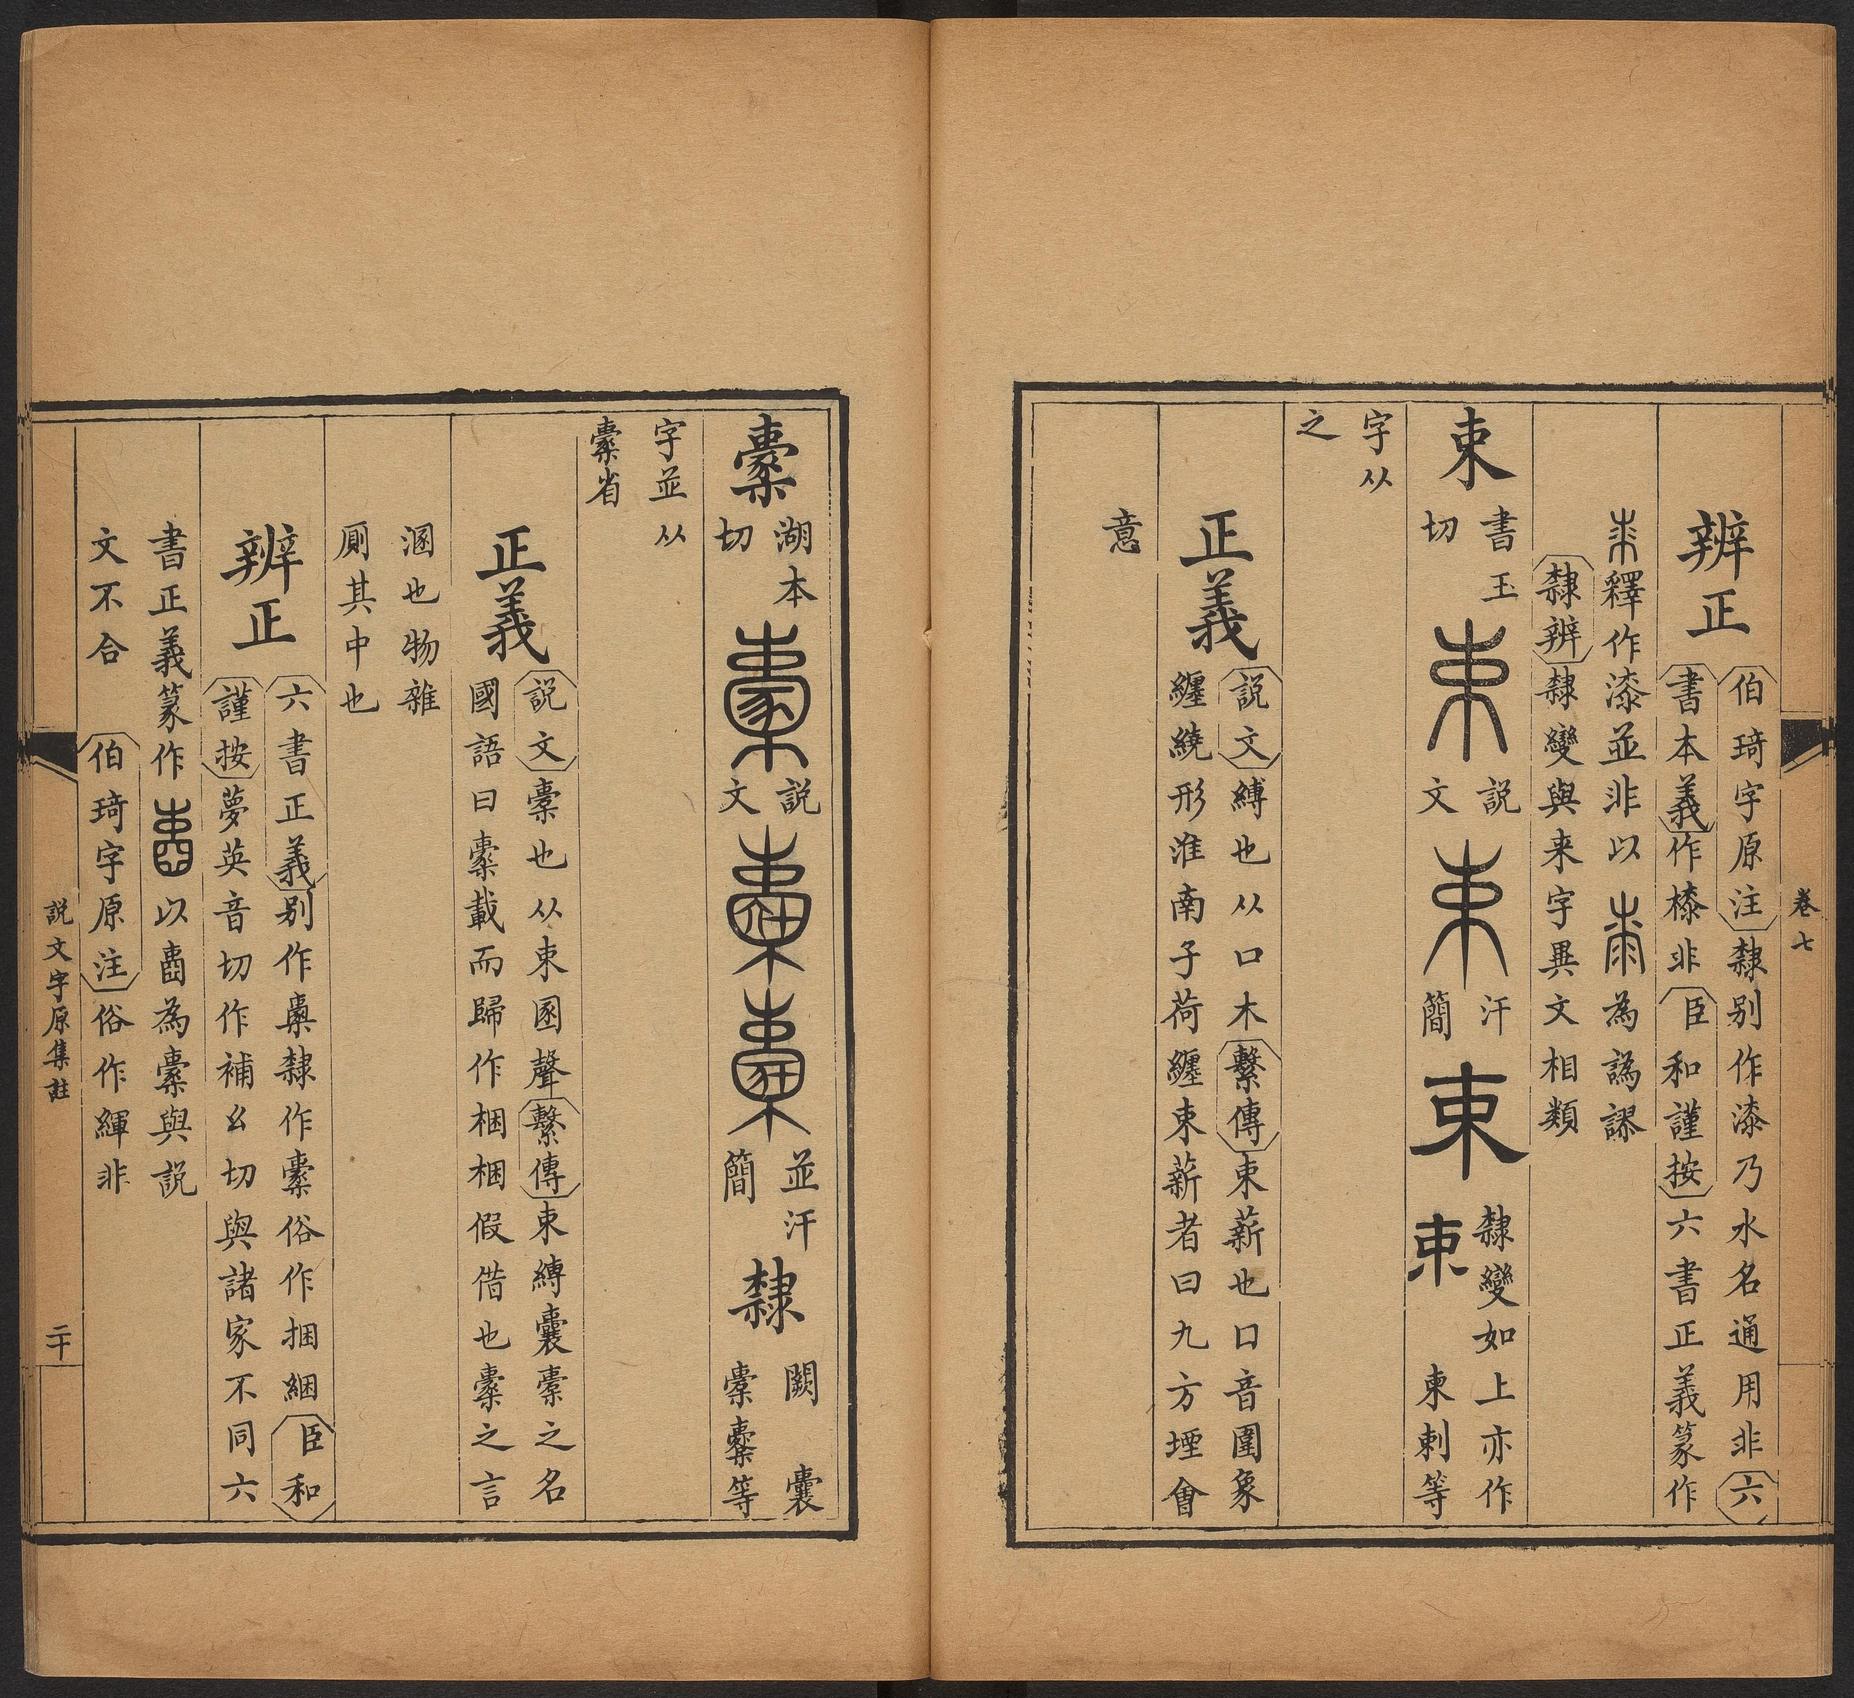 卷七
辨正
伯琦字原注隸别作漆乃水名通用非六
書本義作榛非臣和謹按六書正義篆作
釋作漆並非以
為譌謬
隸辨隸變與来字異文相類
束
書玉
切
説
文
汗
簡
隸變如上亦作
束刺等
字从
之
正義
説文縛也从口木繫傳束薪也口音圍象
纏繞形淮南子荷纏束薪者曰九方堙會
意
橐
湖本
切
説
文
並汗
簡
隸
闕 囊
等
字並从
橐省
正義
説文橐也从束圂聲繫傳束縛囊橐之名
國語曰橐載而歸作梱梱假借也橐之言
溷也物雜
厠其中也
辨正
六書正義别作橐隸作橐俗作捆綑臣和
謹按夢英音切作補幺切與諸家不同六
書正義篆作
以為橐與説
文不合
伯琦字原注俗作緷非
説文字原集註
二十